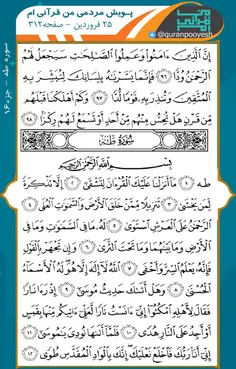 پویش مردمی من قرآنی ام
۲۵ فروردین - صفحه ۳۱۲
@quranpooyesh
سوره طه - جزء ۱۶
إِنَّ الَّذِينَ ءَامَنُوا وَعَمِلُوا الصَّٰلِحَٰتِ سَيَجْعَلُ لَهُمُ
الرَّحْمَٰنُ وُدًّا ٩٦ فَإِنَّمَا يَسَّرْنَٰهُ بِلِسَانِكَ لِتُبَشِّرَ بِهِ
الْمُتَّقِينَ وَتُنْذِرَ بِهِ قَوْمًا لُدًّا ٩٧ وَكَمْ أَهْلَكْنَا قَبْلَهُمْ
مِنْ قَرْنٍ هَلْ تُحِسُّ مِنْهُمْ مِنْ أَحَدٍ أَوْ تَسْمَعُ لَهُمْ رِكْزًا ٩٨
سُورَةُ طٰهٰ
بِسْمِ اللَّهِ الرَّحْمَٰنِ الرَّحِيمِ
طه ١ مَا أَنْزَلْنَا عَلَيْكَ الْقُرْءَانَ لِتَشْقَىٰ ٢ إِلَّا تَذْكِرَةً
لِمَنْ يَخْشَىٰ ٣ تَنْزِيلًا مِمَّنْ خَلَقَ الْأَرْضَ وَالسَّمَٰوَٰتِ الْعُلَى ٤
الرَّحْمَٰنُ عَلَى الْعَرْشِ اسْتَوَىٰ ٥ لَهُ مَا فِي السَّمَٰوَٰتِ وَمَا فِي
الْأَرْضِ وَمَا بَيْنَهُمَا وَمَا تَحْتَ الثَّرَىٰ ٦ وَإِنْ تَجْهَرْ بِالْقَوْلِ
فَإِنَّهُ يَعْلَمُ السِّرَّ وَأَخْفَى ٧ اللَّهُ لَا إِلَٰهَ إِلَّا هُوَ لَهُ الْأَسْمَاءُ
الْحُسْنَىٰ ٨ وَهَلْ أَتَىٰكَ حَدِيثُ مُوسَىٰ ٩ إِذْ رَءَا نَارًا
فَقَالَ لِأَهْلِهِ امْكُثُوا إِنِّي ءَانَسْتُ نَارًا لَعَلِّي ءَاتِيكُمْ مِنْهَا بِقَبَسٍ
أَوْ أَجِدُ عَلَى النَّارِ هُدًى ١٠ فَلَمَّا أَتَىٰهَا نُودِيَ يَٰمُوسَىٰ ١١
إِنِّي أَنَا رَبُّكَ فَاخْلَعْ نَعْلَيْكَ إِنَّكَ بِالْوَادِ الْمُقَدَّسِ طُوًى ١٢